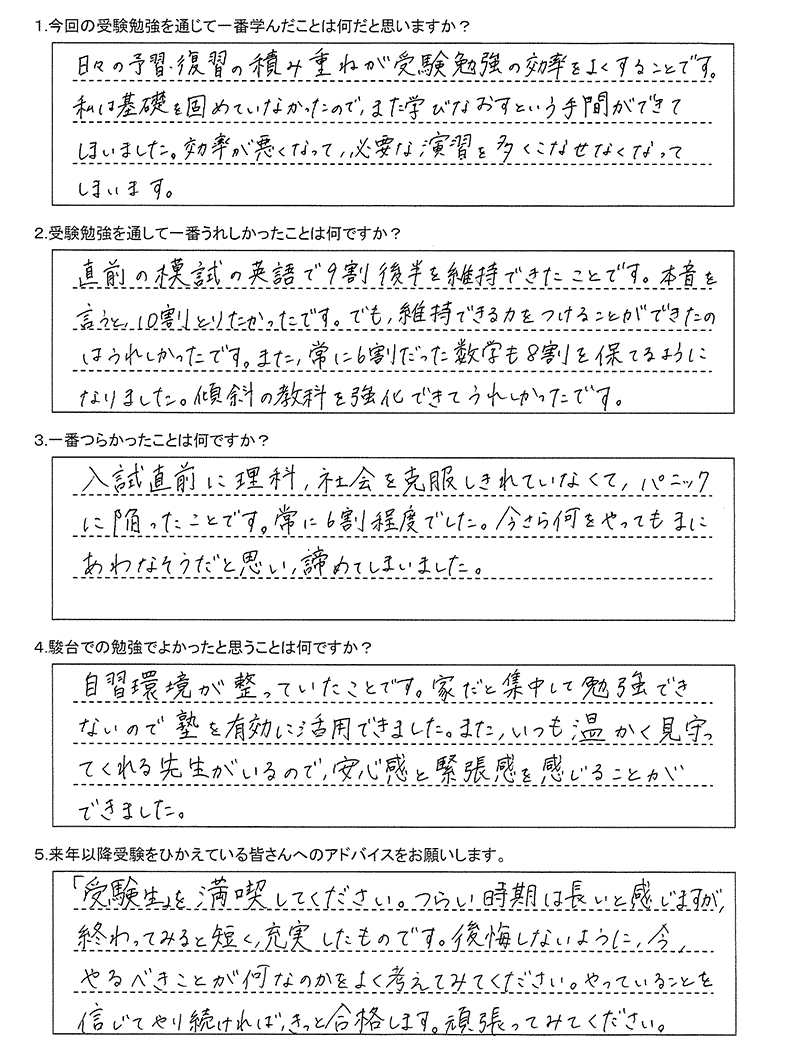 1.今回の受験勉強を通じて一番学んだことは何だと思いますか？
日々の予習・復習の積み重ねが受験勉強の効率をよくすることです。
私は基礎を固めていなかったので、また学びなおすという手間ができて
しまいました。効率が悪くなって、必要な演習を多くこなせなくなって
しまいます。
2.受験勉強を通して一番うれしかったことは何ですか？
直前の模試の英語で9割後半を維持できたことです。本音を
言うと、10割とりたかったです。でも、維持できる力をつけることができたの
はうれしかったです。また、常に6割だった数学も8割を保てるように
なりました。傾斜の教科を強化できてうれしかったです。
3.一番つらかったことは何ですか？
入試直前に理科、社会を克服しきれていなくて、パニック
に陥ったことです。常に6割程度でした。今さら何をやってもまに
あわなそうだと思い、諦めてしまいました。
4.駿台での勉強でよかったと思うことは何ですか？
自習環境が整っていたことです。家だと集中して勉強でき
ないので塾を有効に活用できました。また、いつも温かく見守っ
てくれる先生がいるので、安心感と緊張感を感じることが
できました。
5.来年以降受験をひかえている皆さんへのアドバイスをお願いします。
「受験生」を満喫してください。つらい時期は長いと感じますが、
終わってみると短く、充実したものです。後悔しないように、今、
やるべきことが何なのかをよく考えてみてください。やっていることを
信じてやり続ければ、きっと合格します。頑張ってみてください。